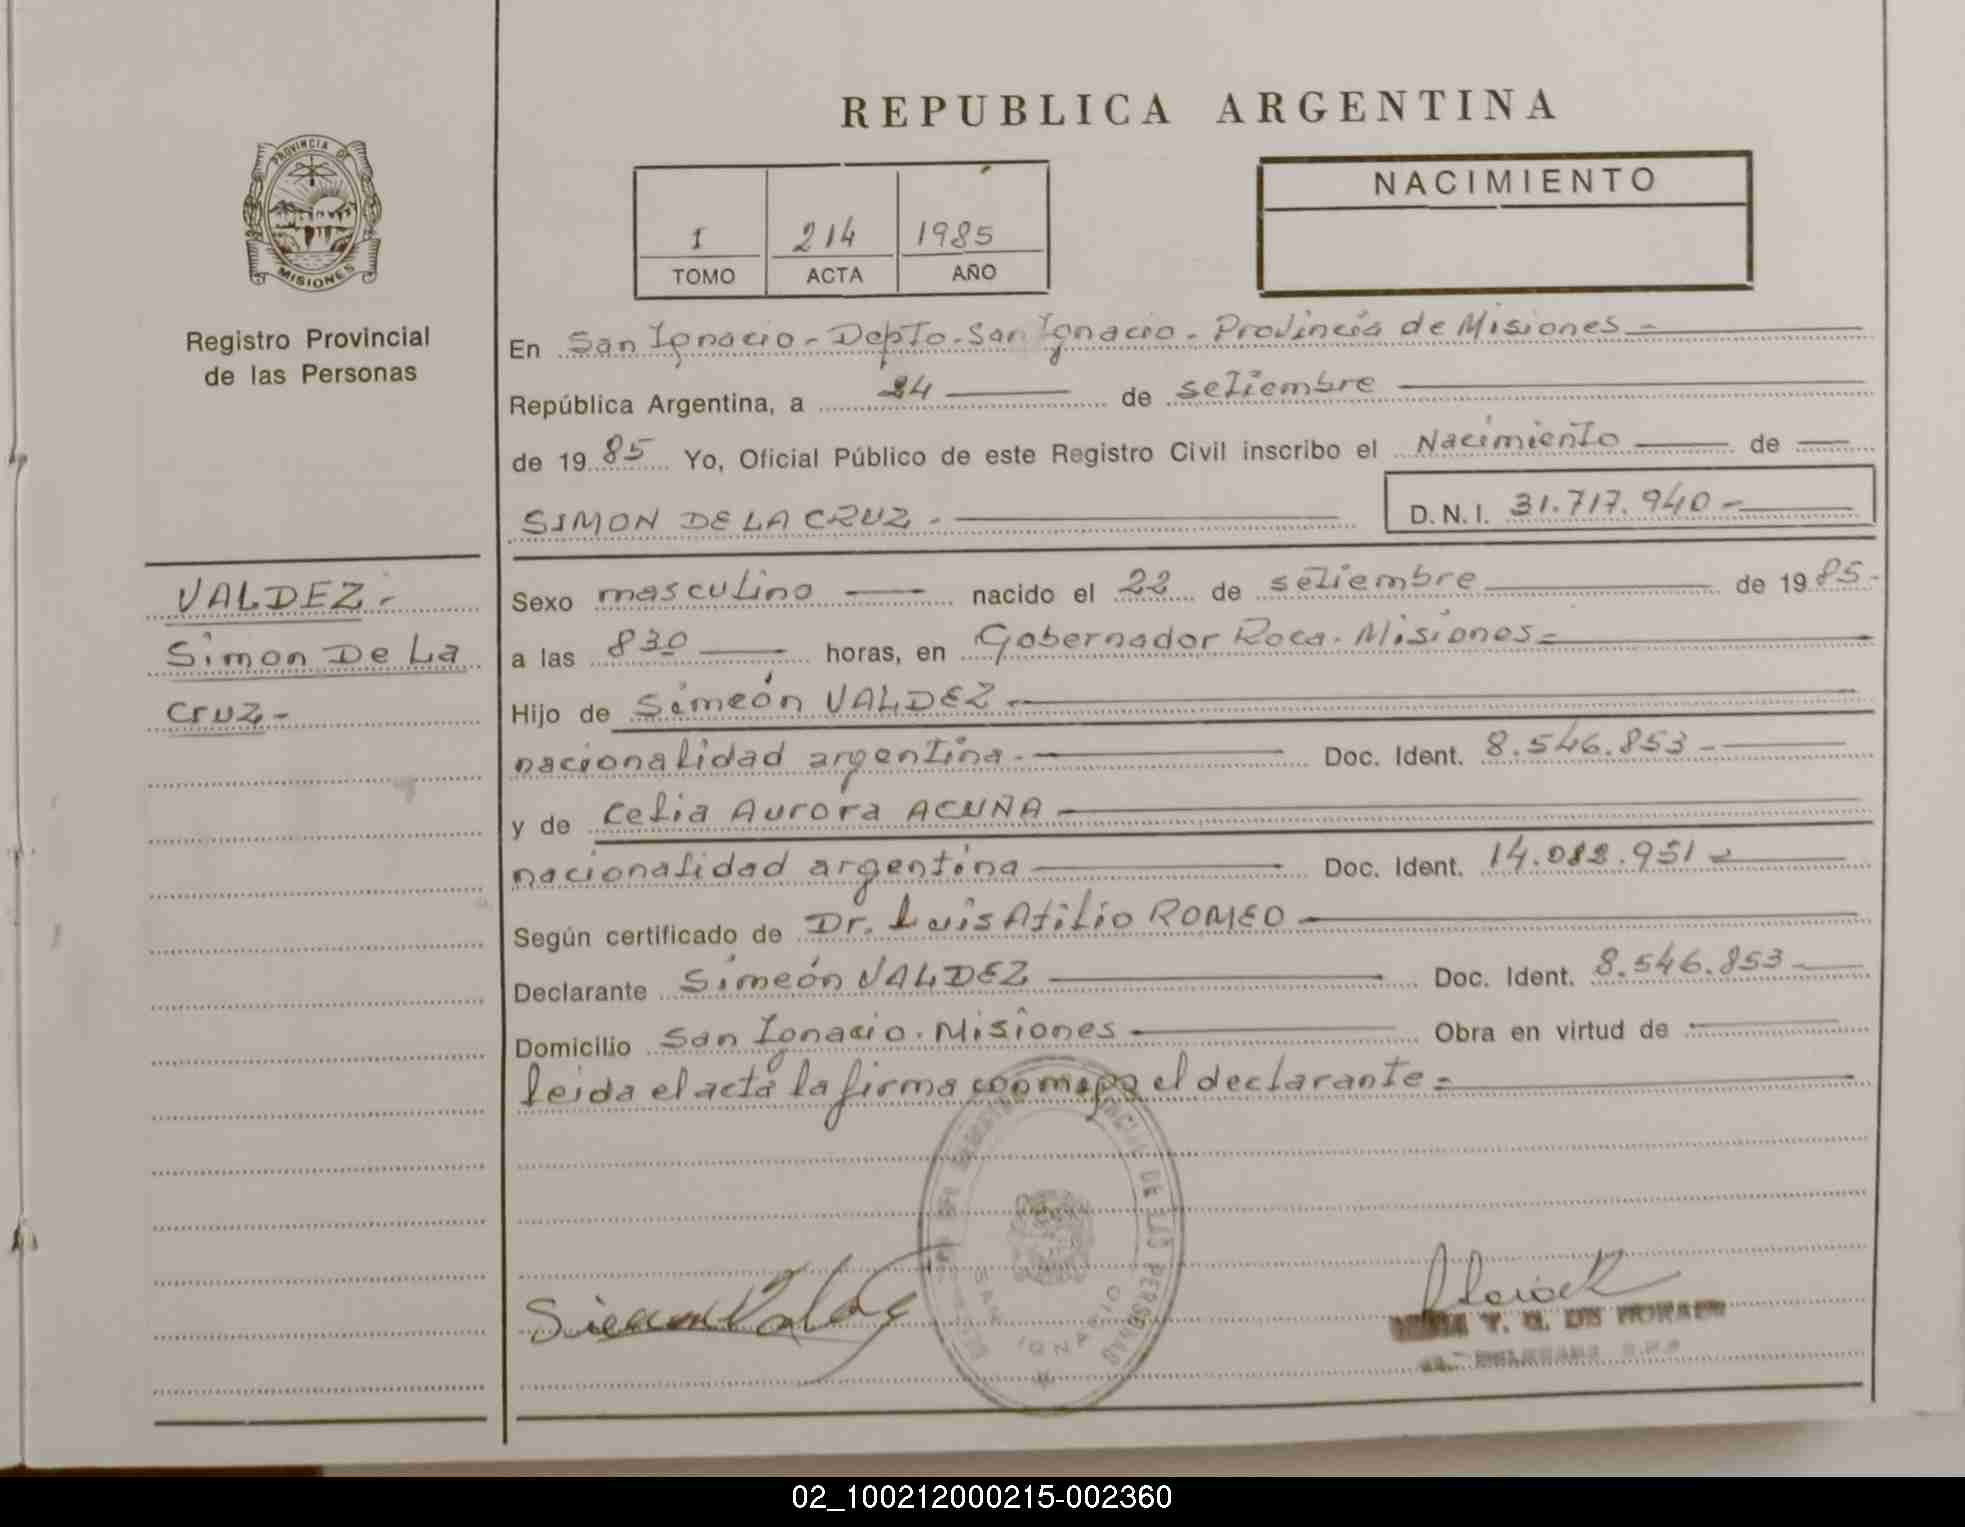 REPUBLICA ARGENTINA
PROVINCIA DE MISIONES
Registro Provincial
de las Personas
I 214 1985
TOMO ACTA AÑO
NACIMIENTO
En San Ignacio - Depto. San Ignacio - Provincia de Misiones -
República Argentina, a 24 de setiembre
de 19 85 Yo, Oficial Público de este Registro Civil inscribo el Nacimiento de
SIMON DE LA CRUZ - D.N.I. 31.717.940 -
VALDEZ -
Simon De La
Cruz -
Sexo masculino nacido el 22 de setiembre de 19 85 -
a las 830 horas, en Gobernador Roca. Misiones -
Hijo de Simeón VALDEZ -
nacionalidad argentina - Doc. Ident. 8.546.853 -
y de Celia Aurora ACUÑA
nacionalidad argentina Doc. Ident. 14.082.951 -
Según certificado de Dr. Luis Atilio ROMEO
Declarante Simeón VALDEZ Doc. Ident. 8.546.853 -
Domicilio San Ignacio. Misiones Obra en virtud de
leida el acta la firma conmigo el declarante -
DE LAS PERSONAS
SAN IGNACIO
02_100212000215-002360